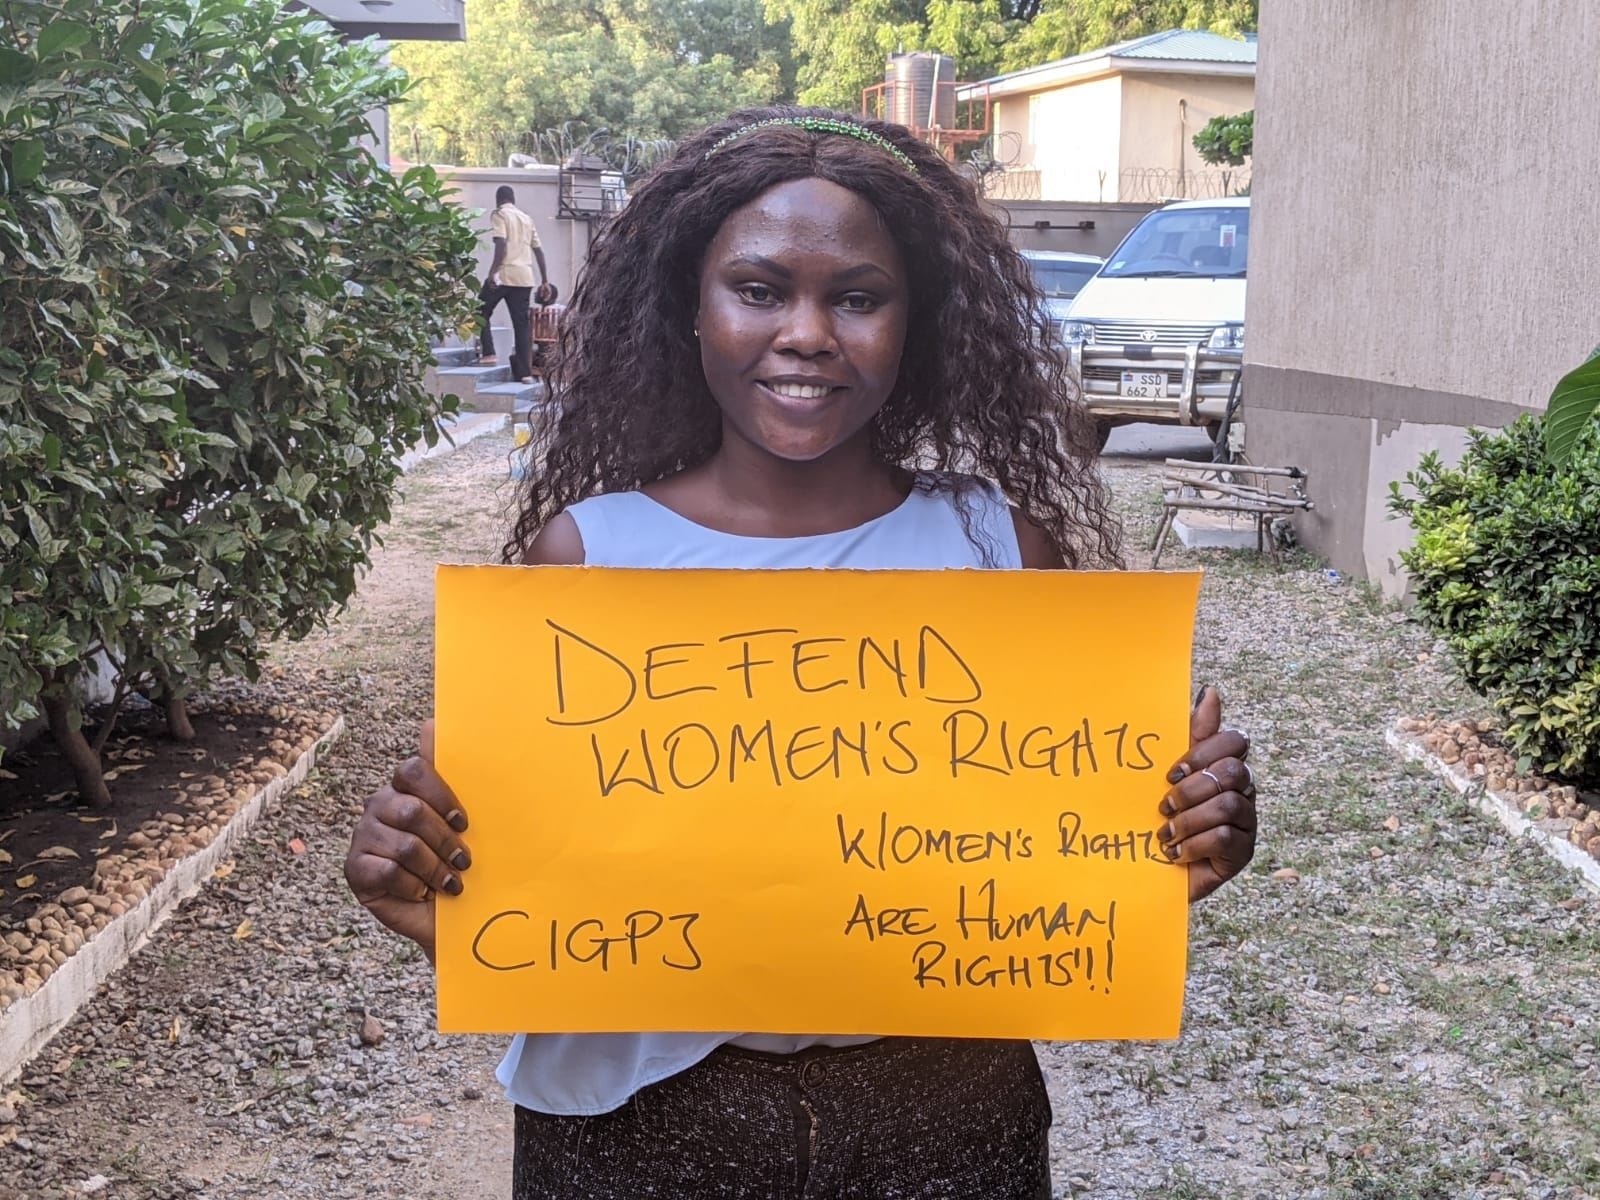 DEFEND
WOMEN'S RIGHTS
WOMEN'S RIGHTS
ARE HUMAN
RIGHTS!!!
CIGPJ
SSD
662 X